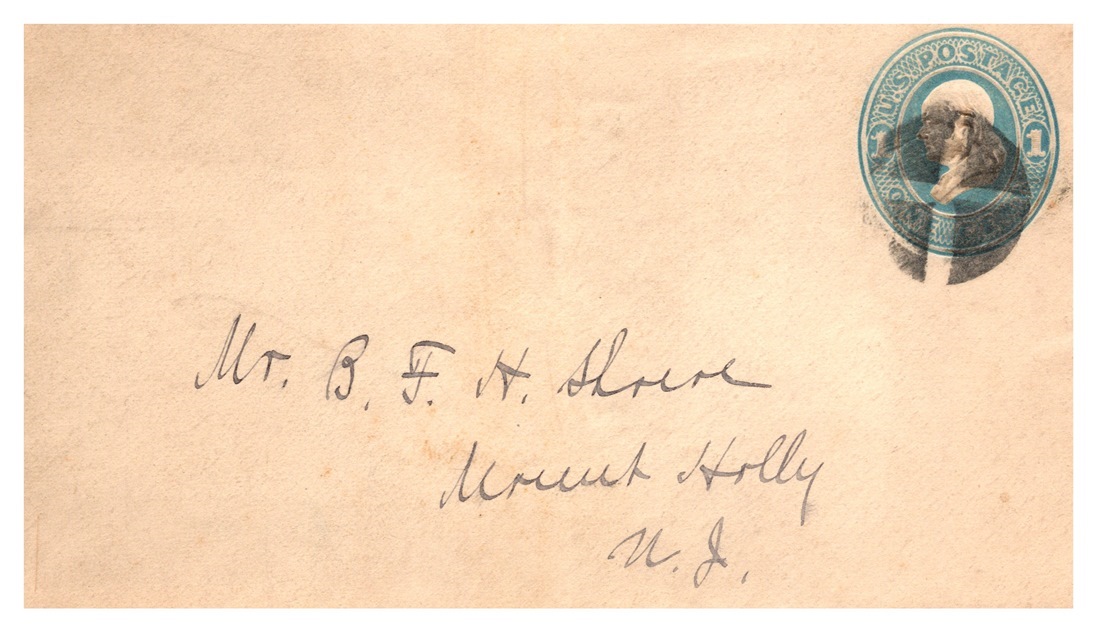 U.S. POSTAGE
1 1
ONE
Mr. B. F. H. Shreve
Mount Holly
N. J.